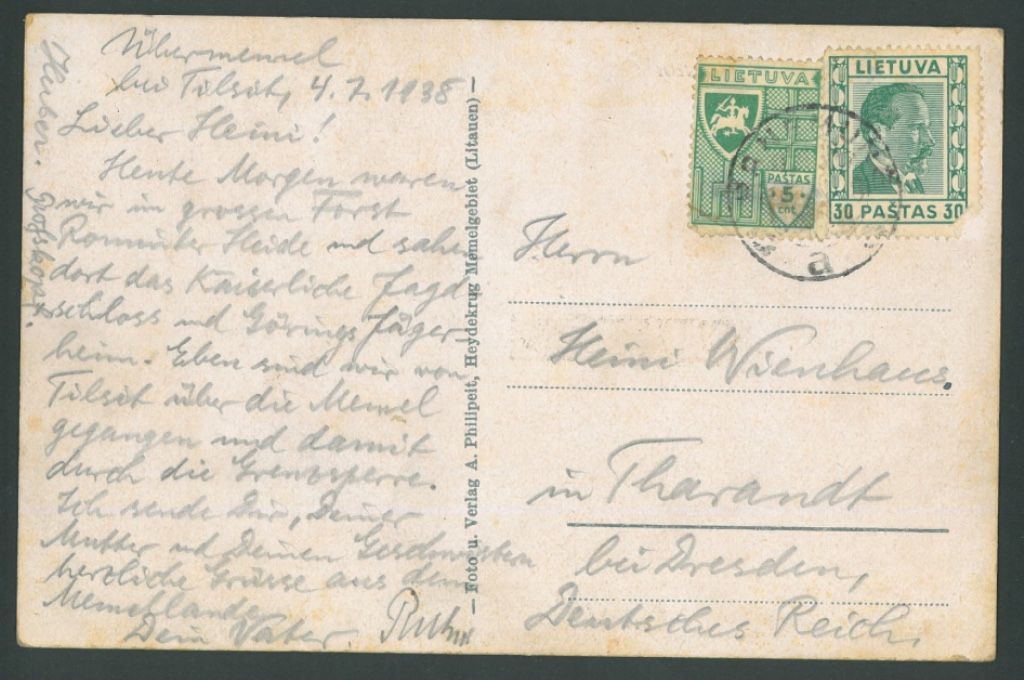 Übermemel
bei Tilsit, 4.7.1938
Lieber Heini!
Heute Morgen waren
wir im grossen Forst
Rominter Heide und sahen
dort das Kaiserliche Jagd
schloss und Görings Jäger
heim. Eben sind wir von
Tilsit über die Memel
gegangen und damit
durch die Grenzsperre.
Ich sende Dir, Deiner
Mutter und Deinen Geschwistern
herzliche Grüsse aus dem
Memellande
Dein Vater.
Huber.
— Foto u. Verlag A. Philipeit, Heydekrug Memelgebiet (Litauen) —
LIETUVA
PAŠTAS
5
cnt.
LIETUVA
30 PAŠTAS 30
a
Herrn
Heini Wienhaus.
in Tharandt
bei Dresden,
Deutsches Reich.